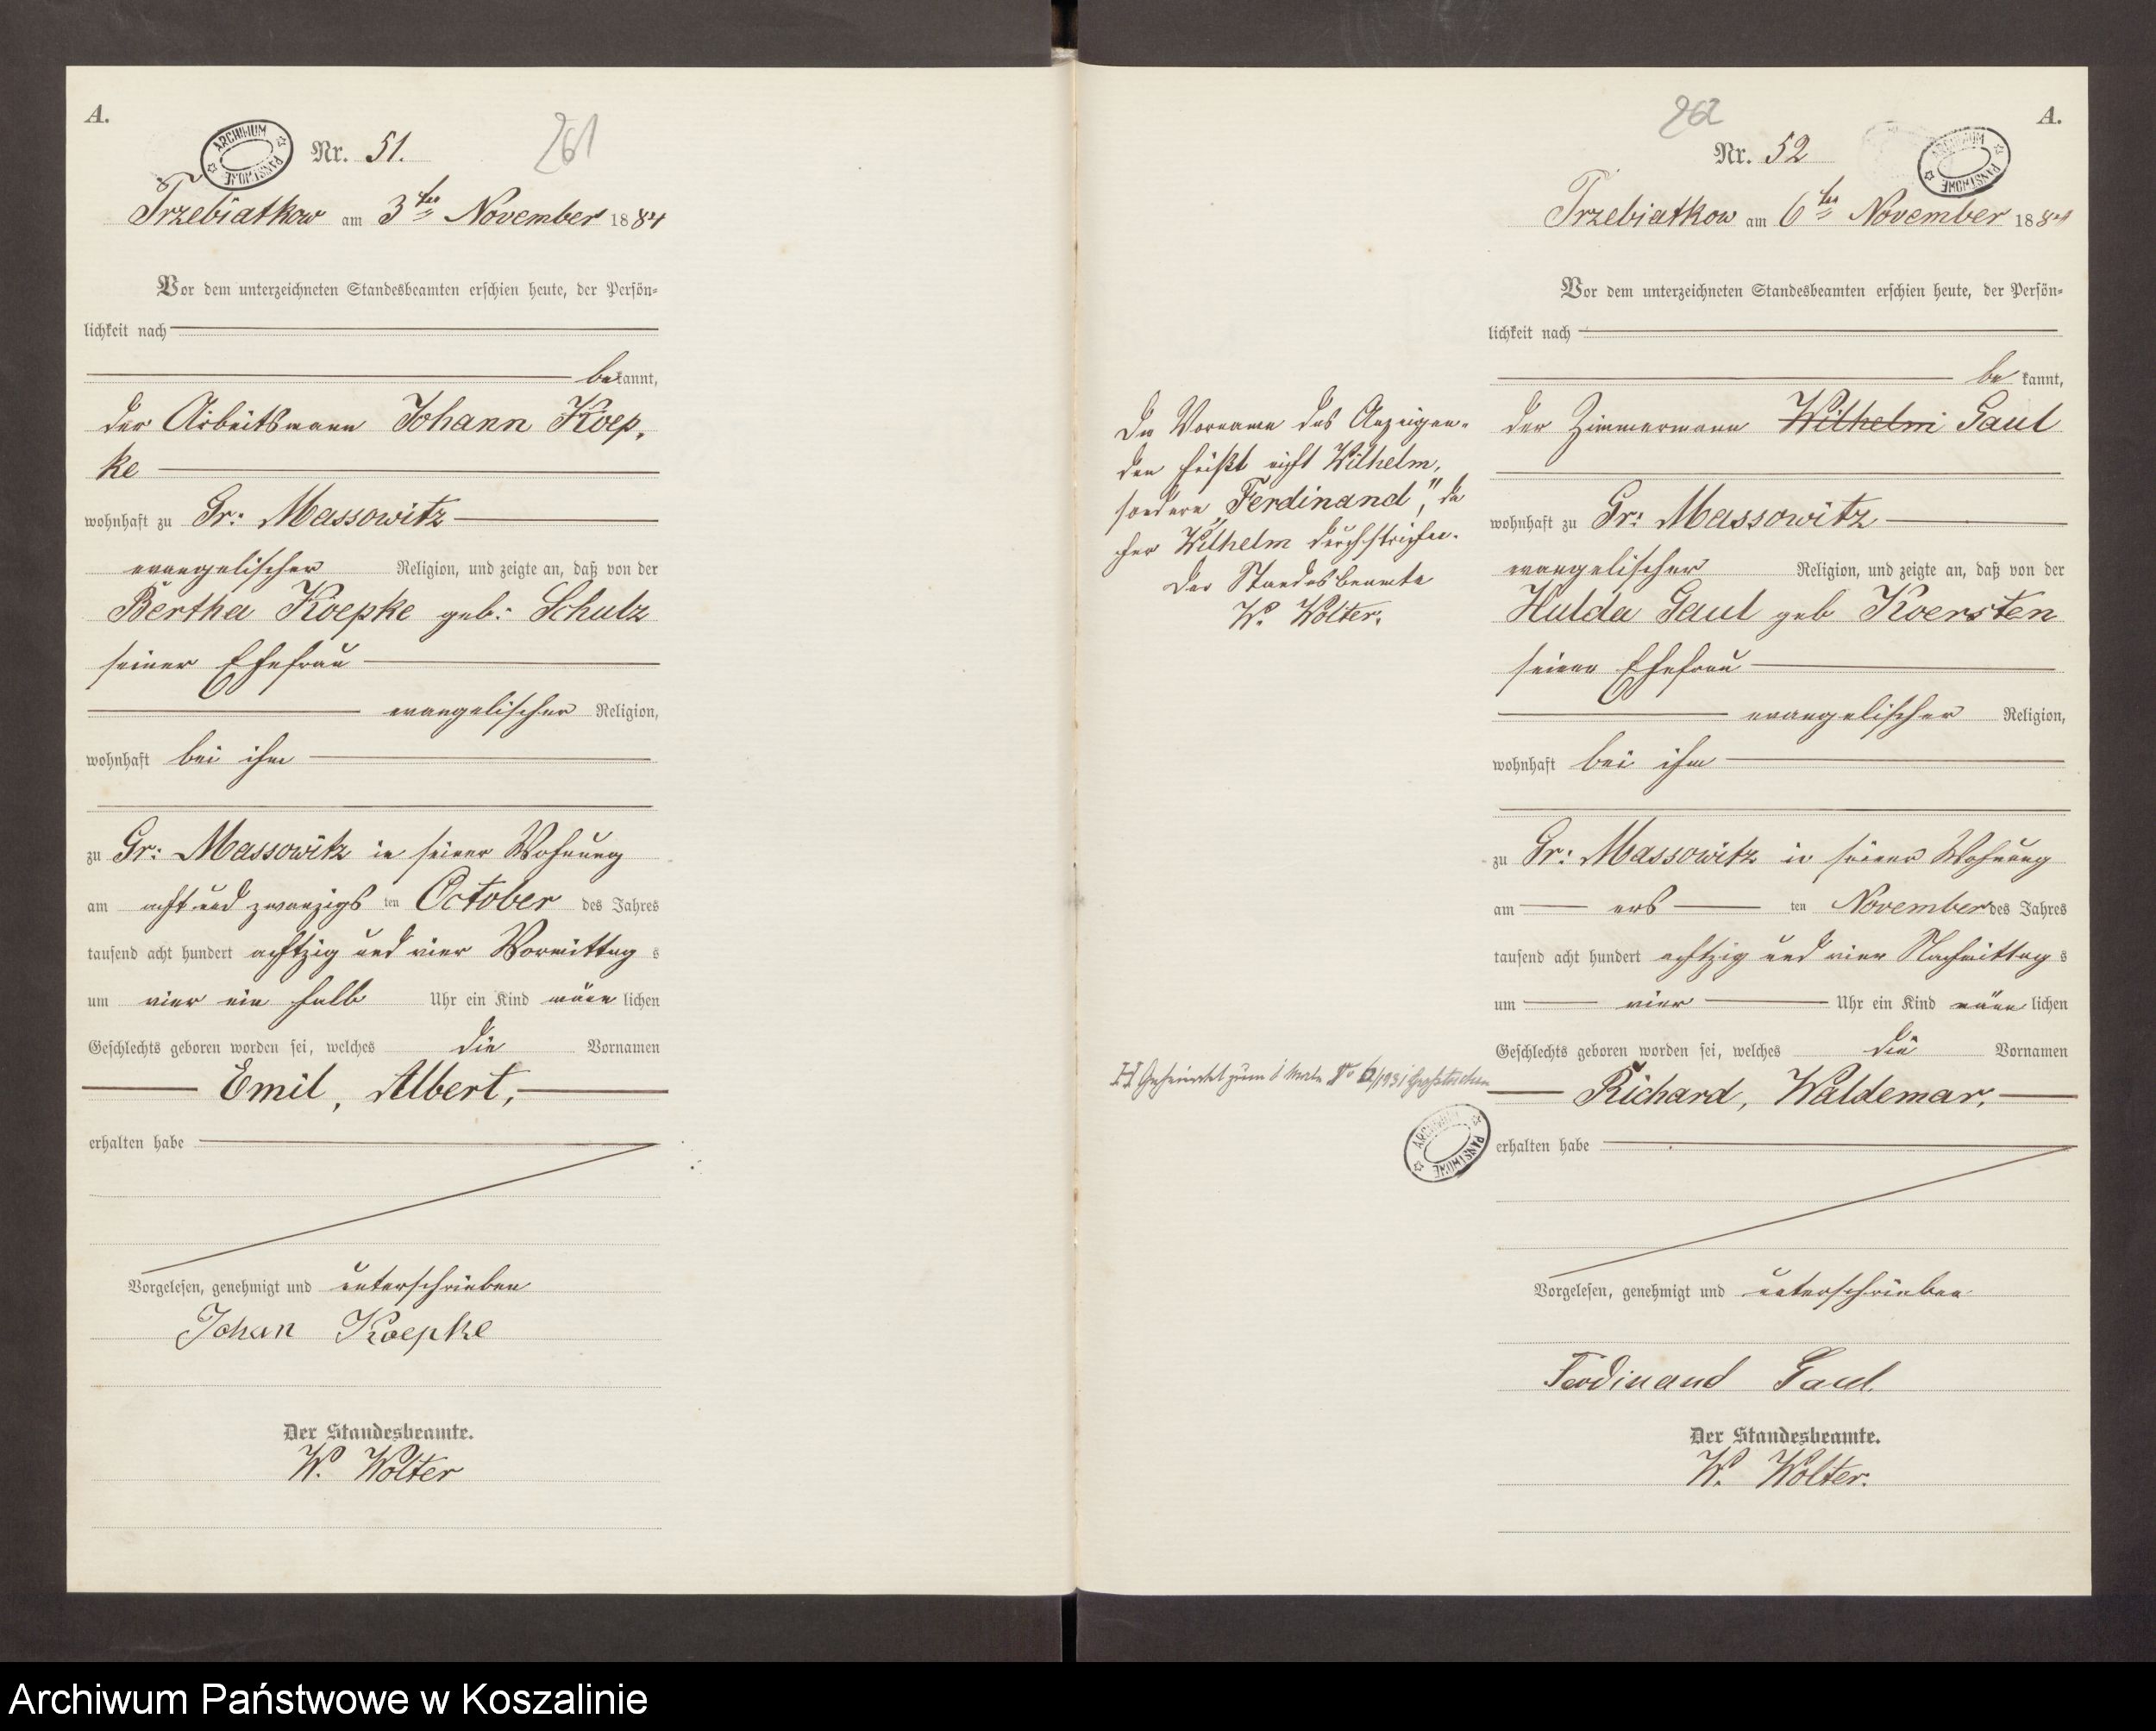 A.
ARCHIWUM PAŃSTWOWE
Nr. 51.
261
Trzebiatkow am 3ten November 1884
Vor dem unterzeichneten Standesbeamten erschien heute, der Persön-
lichkeit nach
bekannt,
der Arbeitsmann Johann Koep-
ke
wohnhaft zu Gr: Massowitz
evangelischer Religion, und zeigte an, daß von der
Bertha Koepke geb: Schulz
seiner Ehefrau
evangelischer Religion,
wohnhaft bei ihm
zu Gr: Massowitz in seiner Wohnung
am acht und zwanzigsten October des Jahres
tausend acht hundert achtzig und vier Vormittags
um vier ein halb Uhr ein Kind männlichen
Geschlechts geboren worden sei, welches die Vornamen
Emil, Albert,
erhalten habe
Vorgelesen, genehmigt und unterschrieben
Johan Koepke
Der Standesbeamte.
W. Wolter
262
A.
Nr. 52
ARCHIWUM PAŃSTWOWE
Trzebiatkow am 6ten November 1884
Vor dem unterzeichneten Standesbeamten erschien heute, der Persön-
lichkeit nach
bekannt,
der Zimmermann Wilhelm Gaul
wohnhaft zu Gr: Massowitz
evangelischer Religion, und zeigte an, daß von der
Hulda Gaul geb Koersten
seiner Ehefrau
evangelischer Religion,
wohnhaft bei ihm
zu Gr: Massowitz in seiner Wohnung
am ersten November des Jahres
tausend acht hundert achtzig und vier Nachmittags
um vier Uhr ein Kind männlichen
Geschlechts geboren worden sei, welches die Vornamen
Richard, Waldemar,
erhalten habe
Vorgelesen, genehmigt und unterschrieben
Ferdinand Gaul
Der Standesbeamte.
W. Wolter.
Der Vorname des Anzeigen-
den heißt nicht Wilhelm,
sondern „Ferdinand", da
her Wilhelm durchstrichen.
Der Standesbeamte
W. Wolter.
H Geheiratet zum 1 Male Nr 6/1931
ARCHIWUM PAŃSTWOWE
Archiwum Państwowe w Koszalinie